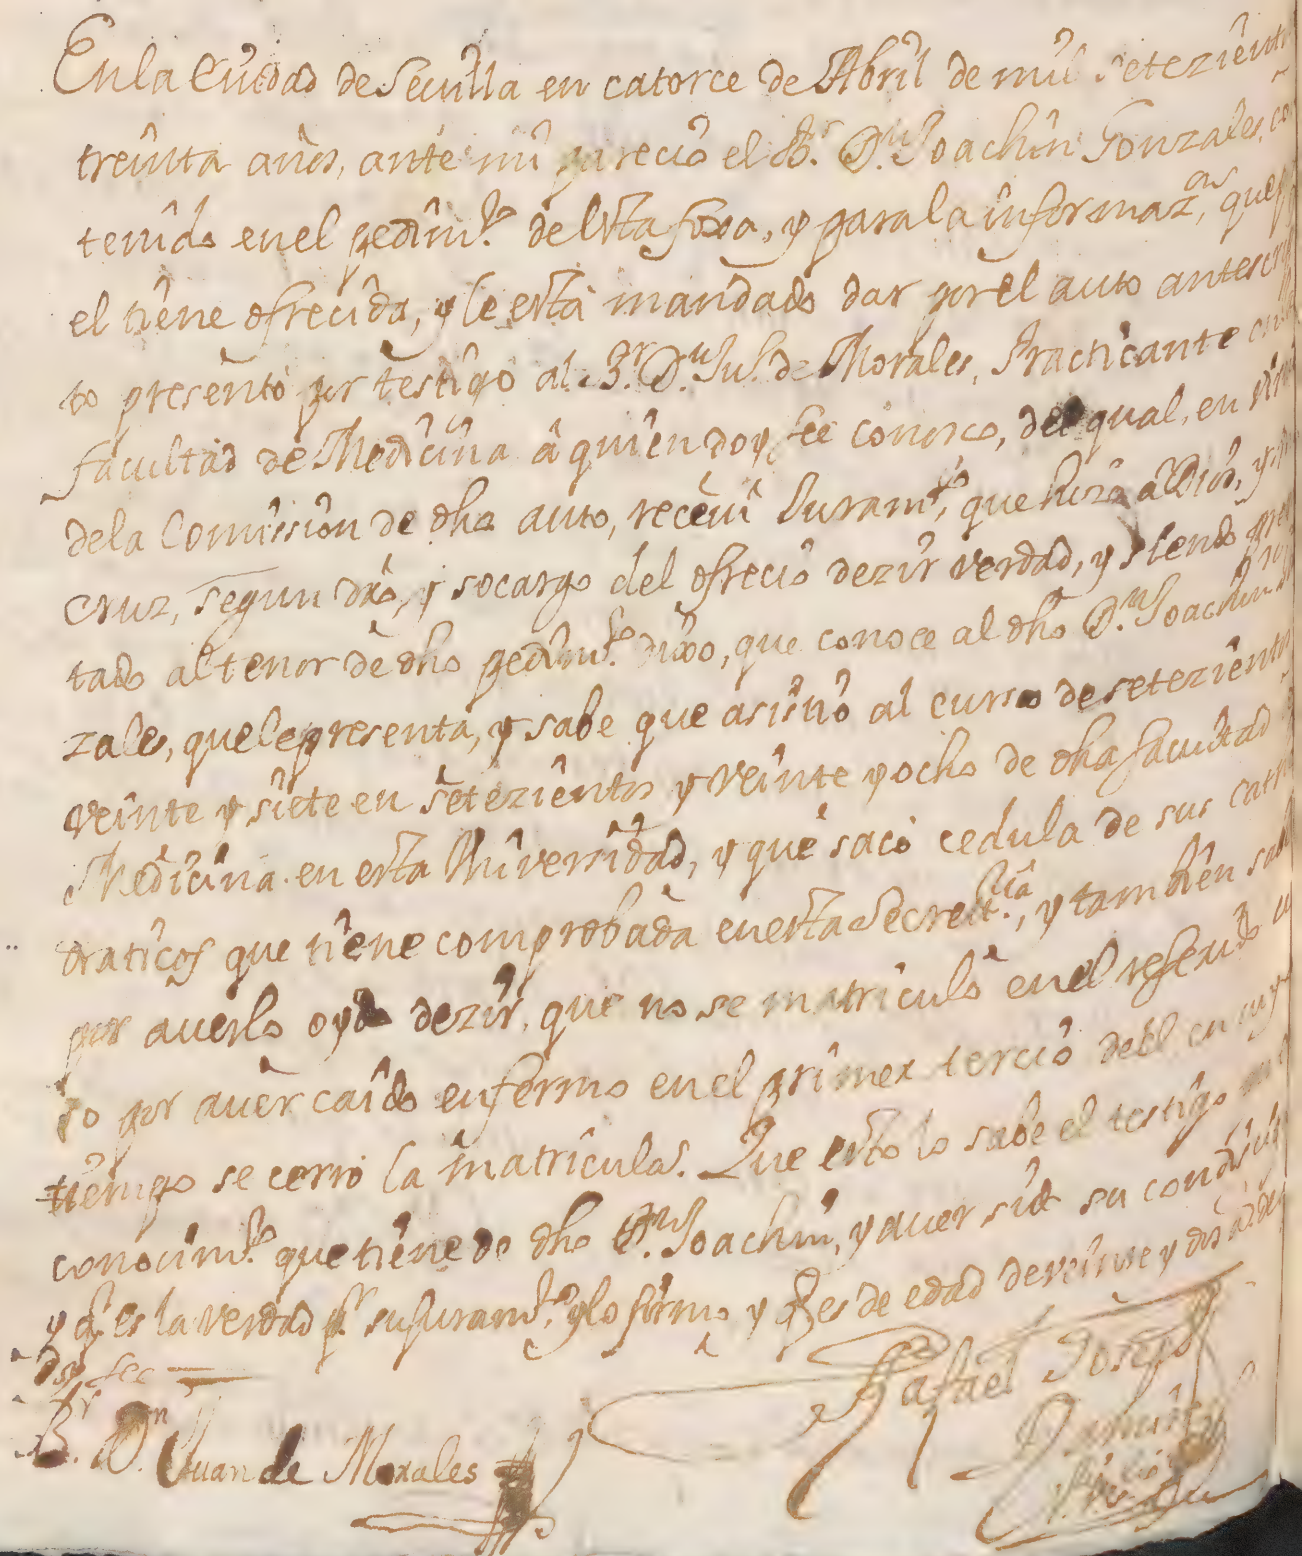 En la Ciudad de Sevilla en catorce de Abril de mil setezient
treinta años, ante mi parecio el Br. Dn. Joachin Gonzales, co
tenido en el pedimto. de esta foxa, y para la informazon, que
el tiene ofrecida, y le está mandado dar por el auto antescri
to presentó por testigo al Br. Dn. Ju.º de Morales, Practicante en
facultad de Medicina a quien doy fee conosco, del qual, en vir
de la Comission de dho auto, recevi Juramto, que hizo a Dios, y
Cruz, segun dro, y socargo del ofrecio dezir verdad, y siendo pre
tado al tenor de dho pedimto. dixo, que conoce al dho Dn. Joachin
zales, que le presenta, y sabe que asistió al curso de setezient
veinte y siete en setezientos y veinte y ocho de dha facultad
Medicina en esta Universidad, y que sacó cedula de sus cat
draticos que tiene comprobada en esta Secretria, y tambien sab
por averlo oydo dezir, que no se matriculó en el referido
so por aver caido enfermo en el primer tercio del en cuy
tiempo se cerró la matricula. Que esto lo sabe el testigo
conocimto. que tiene de dho Dn. Joachin, y aver sido su condiscip
y q es la verdad pr. su Juramto. y lo firmo y q es de edad de veinte y dos años
doy fee
Br. Dn. Juan de Morales
Rafael Joseph